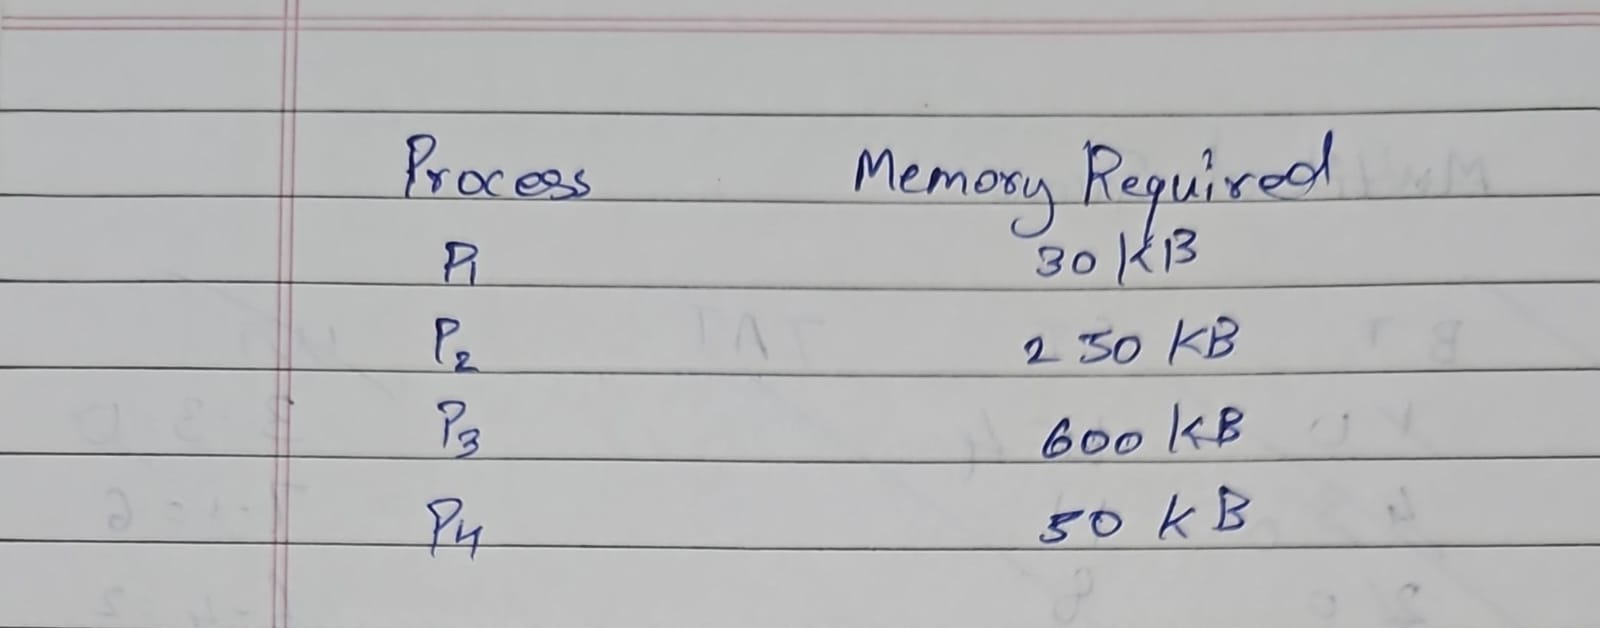 Process Memory Required
P1 30 KB
P2 250 KB
P3 600 KB
P4 50 KB